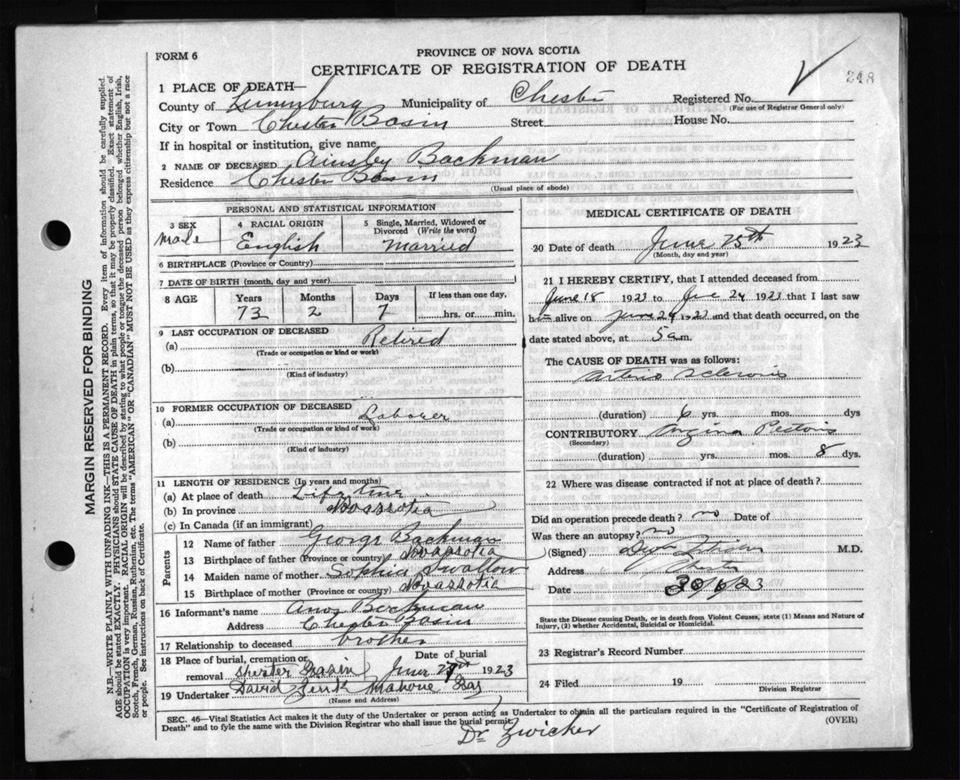 FORM 6
PROVINCE OF NOVA SCOTIA
CERTIFICATE OF REGISTRATION OF DEATH
248
1 PLACE OF DEATH—
County of Lunenburg Municipality of Chester Registered No.
(For use of Registrar General only)
City or Town Chester Basin Street House No.
If in hospital or institution, give name
2 NAME OF DECEASED Ainsby Backman
Residence Chester Basin
(Usual place of abode)
PERSONAL AND STATISTICAL INFORMATION
3 SEX male
4 RACIAL ORIGIN English
5 Single, Married, Widowed or Divorced (Write the word) Married
6 BIRTHPLACE (Province or Country)
7 DATE OF BIRTH (month, day and year)
8 AGE Years 73 Months 2 Days 7 If less than one day, hrs. or min.
9 LAST OCCUPATION OF DECEASED
(a) Retired
(Trade or occupation or kind or work)
(b)
(Kind of industry)
10 FORMER OCCUPATION OF DECEASED
(a) Laborer
(Trade or occupation or kind or work)
(b)
(Kind of industry)
11 LENGTH OF RESIDENCE (In years and months)
(a) At place of death Life time
(b) In province Novascotia
(c) In Canada (if an immigrant)
Parents
12 Name of father George Backman
13 Birthplace of father (Province or country) Novascotia
14 Maiden name of mother Sophia Swallow
15 Birthplace of mother (Province or country) Novascotia
16 Informant's name Amos Backman
Address Chester Basin
17 Relationship to deceased brother
18 Place of burial, cremation or removal Chester Basin Date of burial June 27th 1923
19 Undertaker David Zink Mahone Bay
(Name and Address)
MEDICAL CERTIFICATE OF DEATH
20 Date of death June 25th 1923
(Month, day and year)
21 I HEREBY CERTIFY, that I attended deceased from
June 18 1923 to June 24 1923 that I last saw
him alive on June 24 1923 and that death occurred, on
date stated above, at 5 a m.
The CAUSE OF DEATH was as follows:
Arterio Sclerosis
(duration) 6 yrs. mos. dys
CONTRIBUTORY Angina Pectoris
(Secondary)
(duration) yrs. mos. 8 dys.
22 Where was disease contracted if not at place of death?
Did an operation precede death? no Date of
Was there an autopsy? no
(Signed) M.D.
Address Chester
Date 30/6/23
State the Disease causing Death, or in death from Violent Causes, state (1) Means and Nature of
Injury, (2) whether Accidental, Suicidal or Homicidal.
23 Registrar's Record Number
24 Filed 19
Division Registrar
SEC. 46—Vital Statistics Act makes it the duty of the Undertaker or person acting as Undertaker to obtain all the particulars required in the "Certificate of Registration of
Death" and to fyle the same with the Division Registrar who shall issue the burial permit. (OVER)
Dr Zwicker
MARGIN RESERVED FOR BINDING
N.B.—WRITE PLAINLY WITH UNFADING INK—THIS IS A PERMANENT RECORD. Every item of information should be carefully supplied.
AGE should be stated EXACTLY. PHYSICIANS should STATE CAUSE OF DEATH in plain terms, so that it may be properly classified. Exact statement of
OCCUPATION is very important. RACIAL ORIGIN will be described by stating to what people or tongue the deceased person belonged whether English, Irish,
Scotch, French, German, Russian, Ruthenian, etc. The terms "AMERICAN" OR "CANADIAN" MUST NOT BE USED as they express citizenship but not a race
or people. See instructions on back of Certificate.